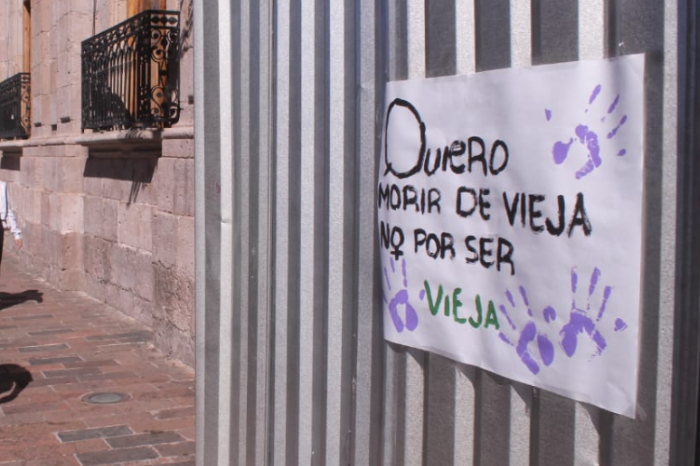 Quiero
MORIR DE VIEJA
NO POR SER
VIEJA